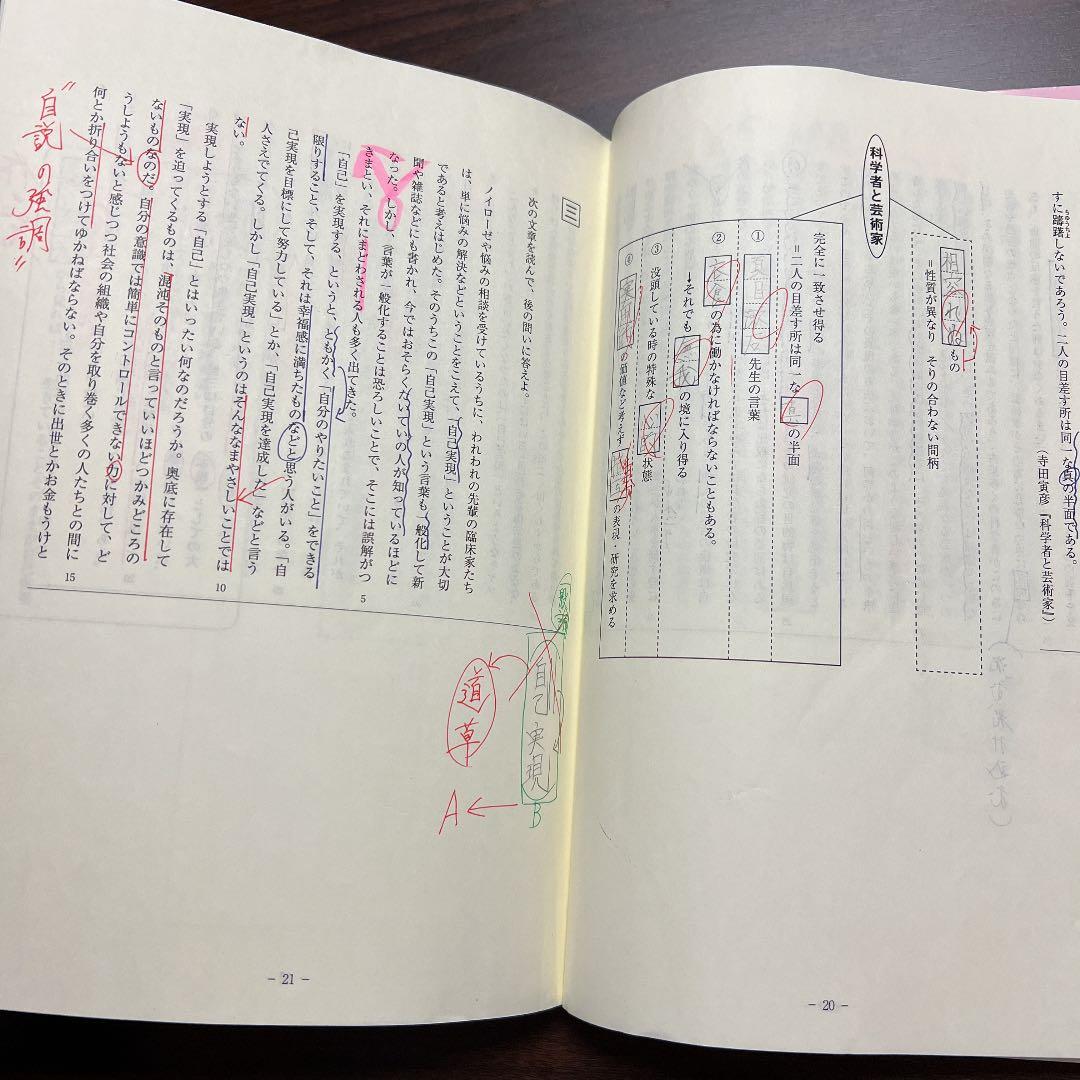 すに躊躇しないであろう。二人の目差す所は同一な真の半面である。
ちゅうちょ
(寺田寅彦『科学者と芸術家』)
科学者と芸術家
相容れぬもの
=性質が異なり そりの合わない間柄
完全に一致させ得る
=二人の目差す所は同一な真の半面
① 夏目 先生の言葉
② 衣食の為に働かなければならないこともある。
→それでも の境に入り得る
③ 没頭している時の特殊な 状態
④ の価値など考えず の表現・研究を求める
- 20 -
三
次の文章を読んで、後の問いに答えよ。
ノイローゼや悩みの相談を受けているうちに、われわれの先輩の臨床家たち
は、単に悩みの解決などということをこえて、「自己実現」ということが大切
であると考えはじめた。そのうちこの「自己実現」という言葉も一般化して新
聞や雑誌などにも書かれ、今ではおそらくたいていの人が知っているほどに
なった。しかし、言葉が一般化することは恐ろしいことで、そこには誤解がつ
5
きまとい、それにまどわされる人も多く出てきた。
「自己」を実現する、というと、ともかく「自分のやりたいこと」をできる
限りすること、そして、それは幸福感に満ちたものなどと思う人がいる。「自
己実現を目標にして努力している」とか、「自己実現を達成した」などと言う
人さえでてくる。しかし「自己実現」というのはそんななまやさしいことでは
10
ない。
実現しようとする「自己」とはいったい何なのだろうか。奥底に存在して
「実現」を迫ってくるものは、混沌そのものと言っていいほどつかみどころの
ないものなのだ。自分の意識では簡単にコントロールできない力に対して、ど
うしようもないと感じつつ社会の組織や自分を取り巻く多くの人たちとの間に
15
何とか折り合いをつけてゆかねばならない。そのときに出世とかお金もうけと
"自説の強調"
自己実現
B
道草
A
- 21 -